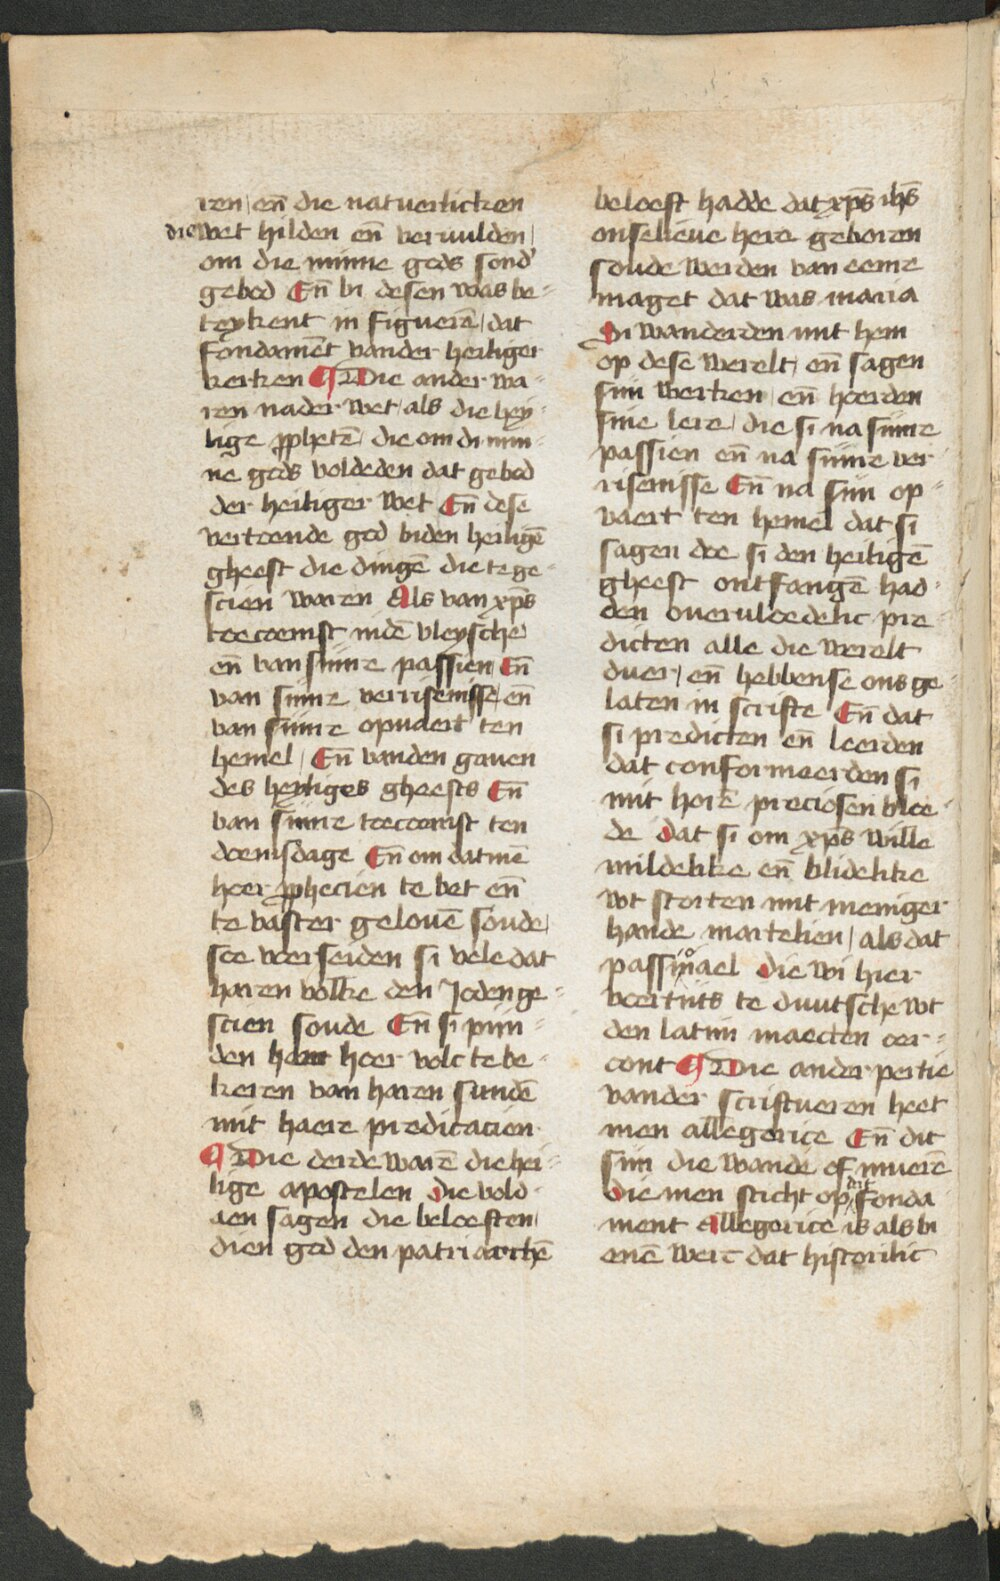 ren / en̄ die natuerlicken
die wet hilden en̄ veruulden /
om die minne gods sond'
gebod En̄ bi desen was be-
teykent in figuerē / dat
fondamēt vander heiliger
kerken ¶ Die ander wa-
ren nader wet / als die hey-
lige ꝓphetē / die om di min-
ne gods voldeden dat gebod
der heiliger wet En̄ dese
vertoende god biden heiligē
gheest die dingē die te ge-
scien waren Als van xp̄s
toecoemst indē vleysche
en̄ van sijnre passien / En̄
van sijnre verrisenisse / en̄
van sijnre opuaert ten
hemel / En̄ vanden gauen
des heyliges gheests En̄
van sijnre toecoemst ten
doemsdage En̄ om datmē
hoer ꝓphecien te bet en̄
te vaster gelouē soude /
soe voerseiden si vele dat
haren volke den Joden ge-
scien soude En̄ si pijn-
den hem hoer volc te be-
keren van haren sundē
mit haere predicacien
¶ Die derde warē die hei-
lige apostelen Die vold-
aen sagen die beloeften /
dien god den patriarchē
beloeft hadde dat xp̄s ih̄s
onse lieue here geboren
soude werden van eenre
maget dat was maria
Si wanderden mit hem
op dese werelt / en̄ sagen
sijn werken / en̄ hoerden
sine lere / die si na sijnre
passien en̄ na sijnre ver-
risenisse En̄ na sijn op-
vaert ten hemel dat si
sagen doe si den heiligē
gheest ontfangē had-
den oueruloedelic pre-
dicten alle die werelt
duer / en̄ hebbense ons ge-
laten in scrifte En̄ dat
si predicten en̄ leerden
dat conformeerden si
mit horē preciosen bloe-
de Dat si om xp̄s wille
mildelike en̄ blidelike
wt storten mit meniger
hande martelien / als dat
passionael Die wi hier
voertijts te duutsche wt
den latijn maecten oer-
cont ¶ Die ander pertie
vander scriftueren heet
men allegorice En̄ dit
sijn die wande of muerē
Die men sticht op dit fonda
ment Allegorice is als bi
enē werc dat historilic